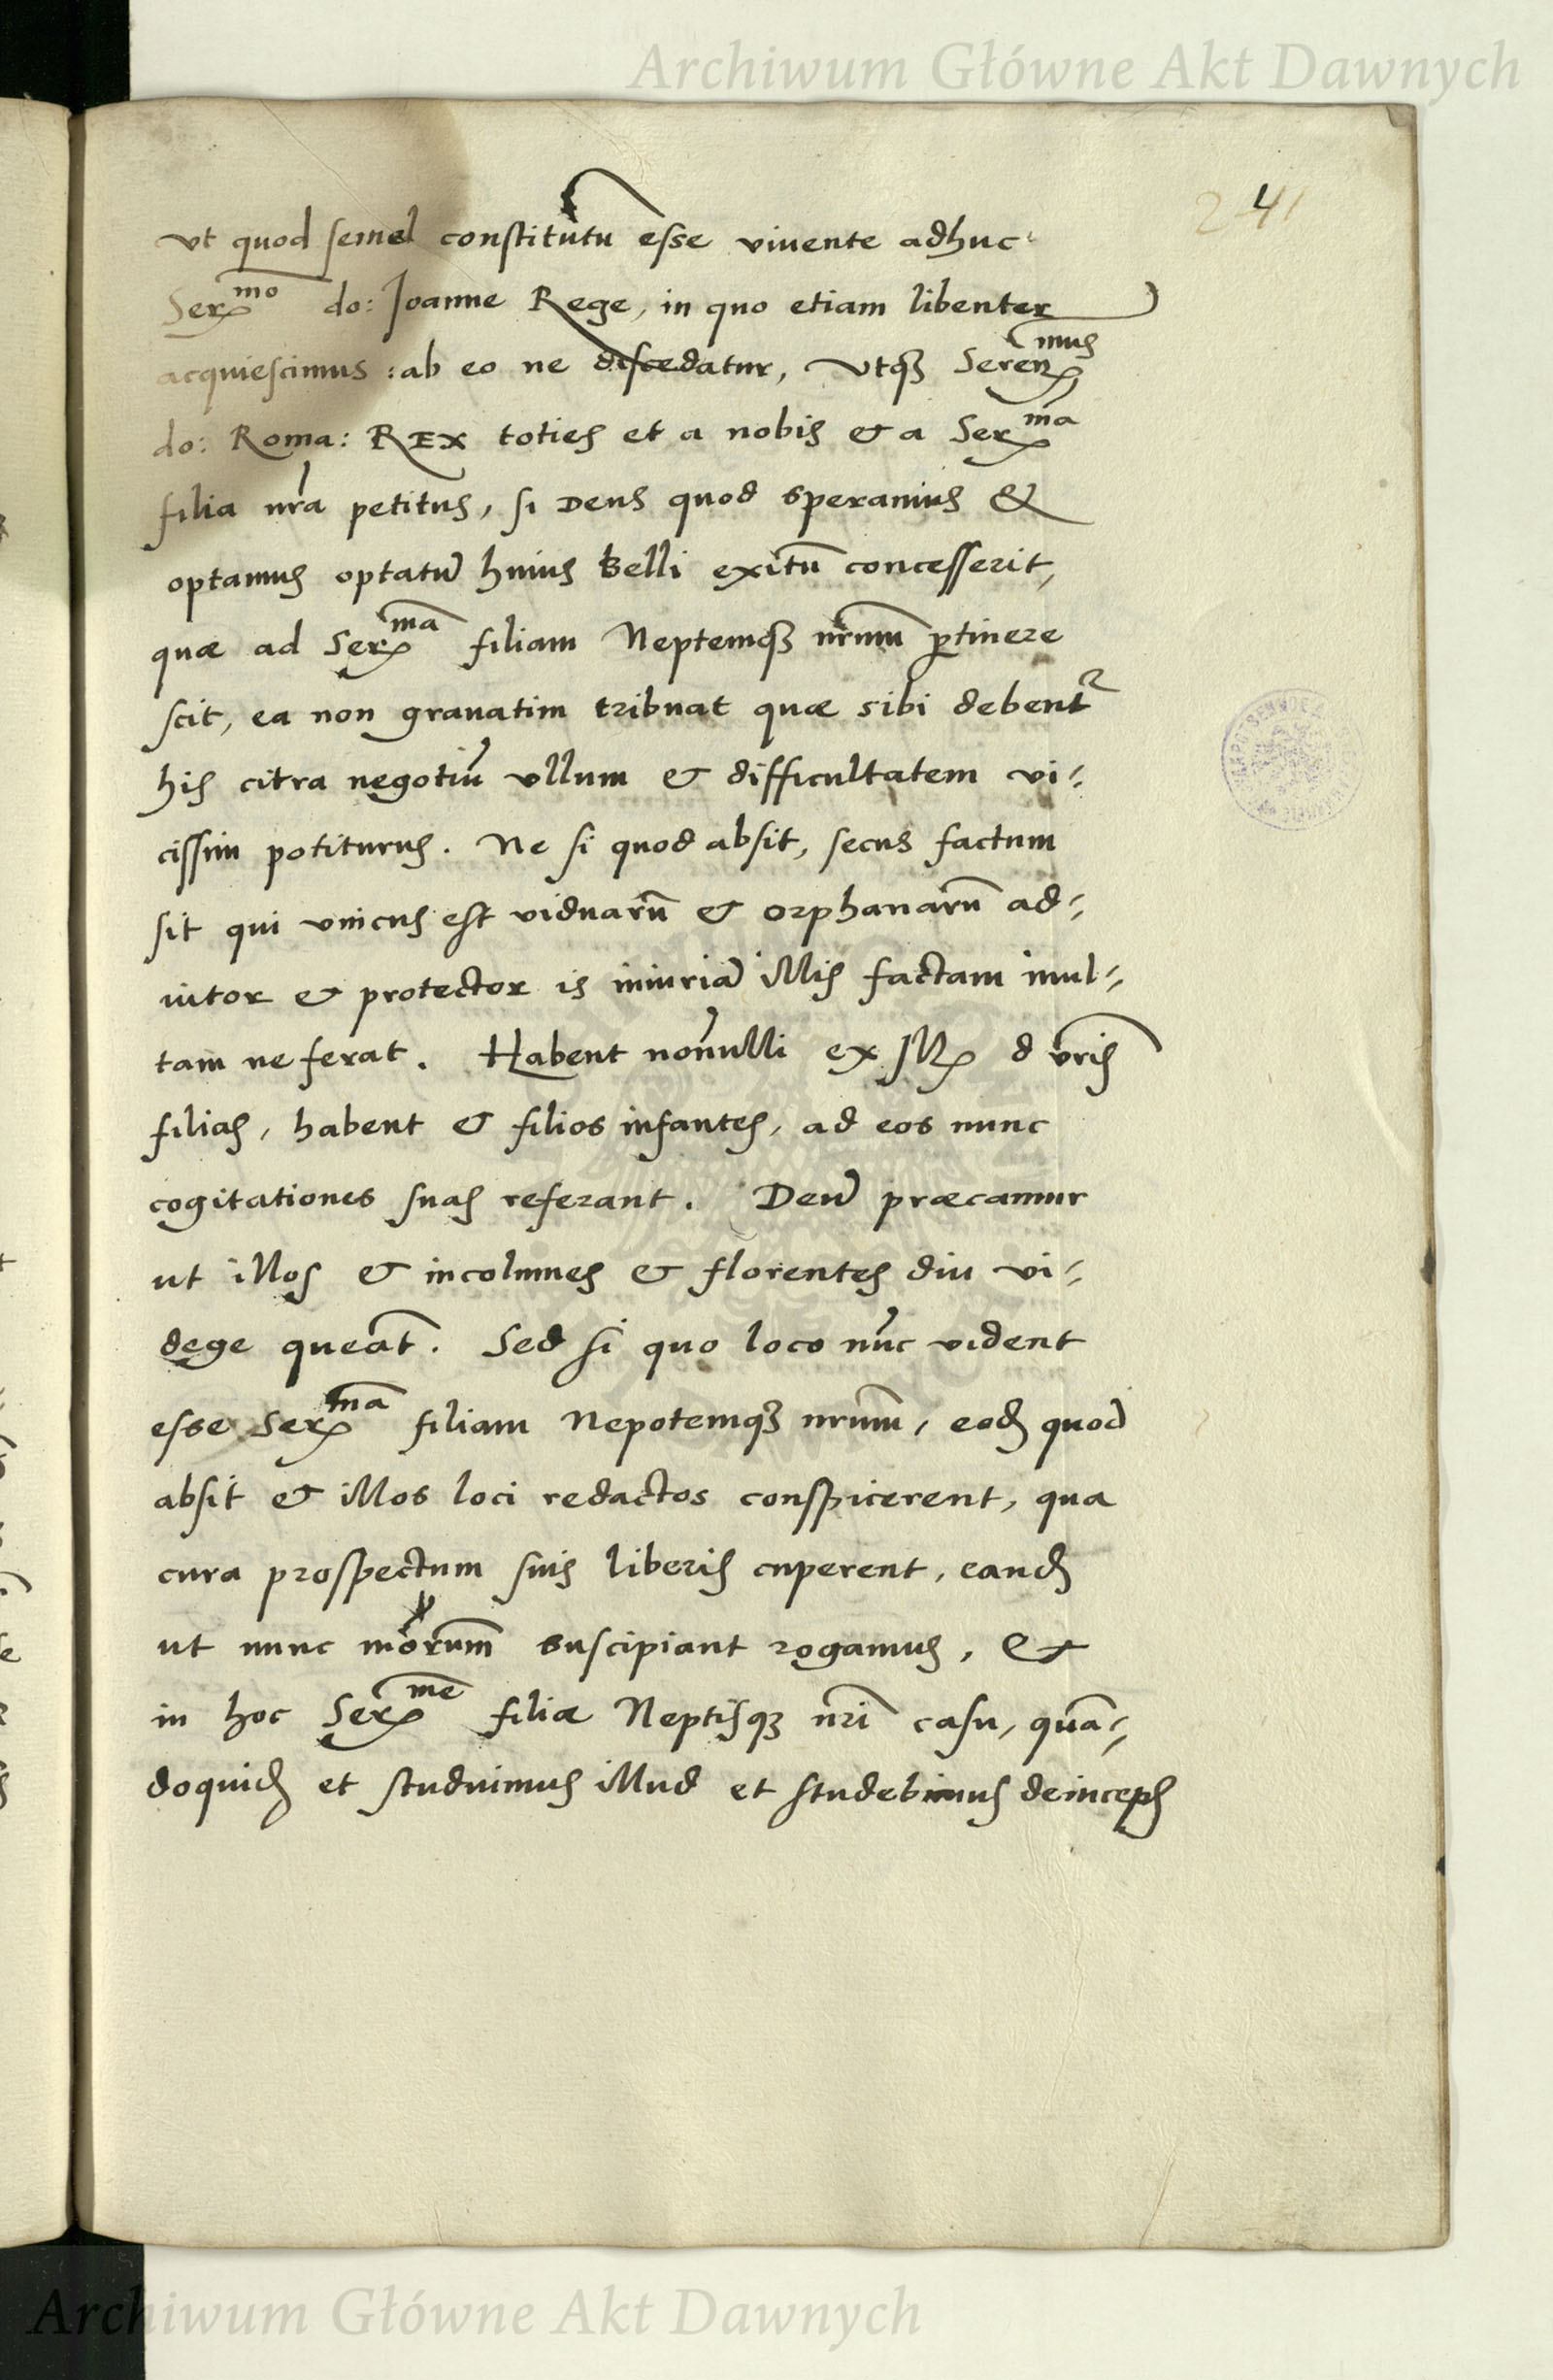 Archiwum Główne Akt Dawnych
4
241
vt quod semel constitutū esse viuente adhuc
Ser^mo do: Joanne Rege, in quo etiam libenter
acquiescimus: ab eo ne discedatur, Vtqȝ Seren^mus
do: Roma: REX toties et a nobis & a Ser^ma
filia nr̄a petitus, si Deus quod speramus &
optamus optatū huius belli exitū concesserit,
quæ ad Ser^mā filiam Neptemqȝ nr̄um ꝑtinere
scit, ea non grauatim tribuat quæ sibi debent^r
his citra negotiū vllum & difficultatem vi-
cissim potiturus. Ne si quod absit, secus factum
sit qui vnicus est viduarū & orphanarū ad-
iutor & protector is iniuriā illis factam inul-
tam ne ferat. Habent nōnulli ex Ill. d vr̄is
filias, habent & filios infantes, ad eos nunc
cogitationes suas referant. Deū præcamur
ut illos & incolumes & florentes diu vi-
dege queāt. Sed si quo loco nūc vident
esse Ser^mā filiam Nepotemqȝ nr̄um, eodē quod
absit & illos loci redactos conspicerent, qua
cura prospectum suis liberis cuperent, eandē
ut nunc suscipiant rogamus, &
in hoc Ser^me filiæ Neptisqȝ nr̄i casu, quā-
doquidē et studuimus illud et studebimus deinceps
Archiwum Główne Akt Dawnych